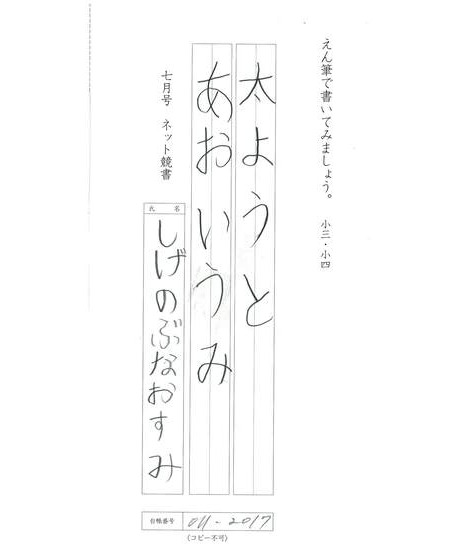 えん筆で書いてみましょう。 小三・小四
太ようと
あおいうみ
七月号 ネット競書
氏名
しげのぶなおすみ
台帳番号 011-2017
(コピー不可)